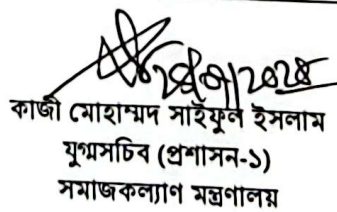 কাজী মোহাম্মদ সাইফুল ইসলাম
যুগ্মসচিব (প্রশাসন-১)
সমাজকল্যাণ মন্ত্রণালয়